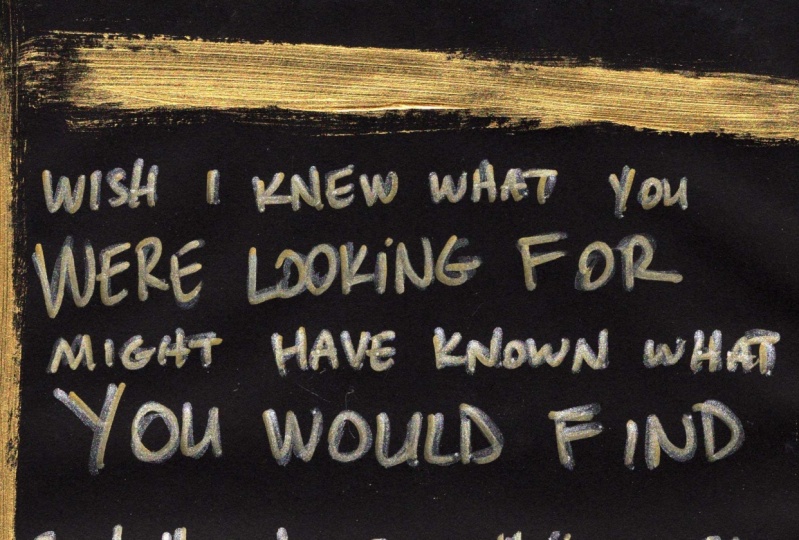 WISH I KNEW WHAT YOU
WERE LOOKING FOR
MIGHT HAVE KNOWN WHAT
YOU WOULD FIND